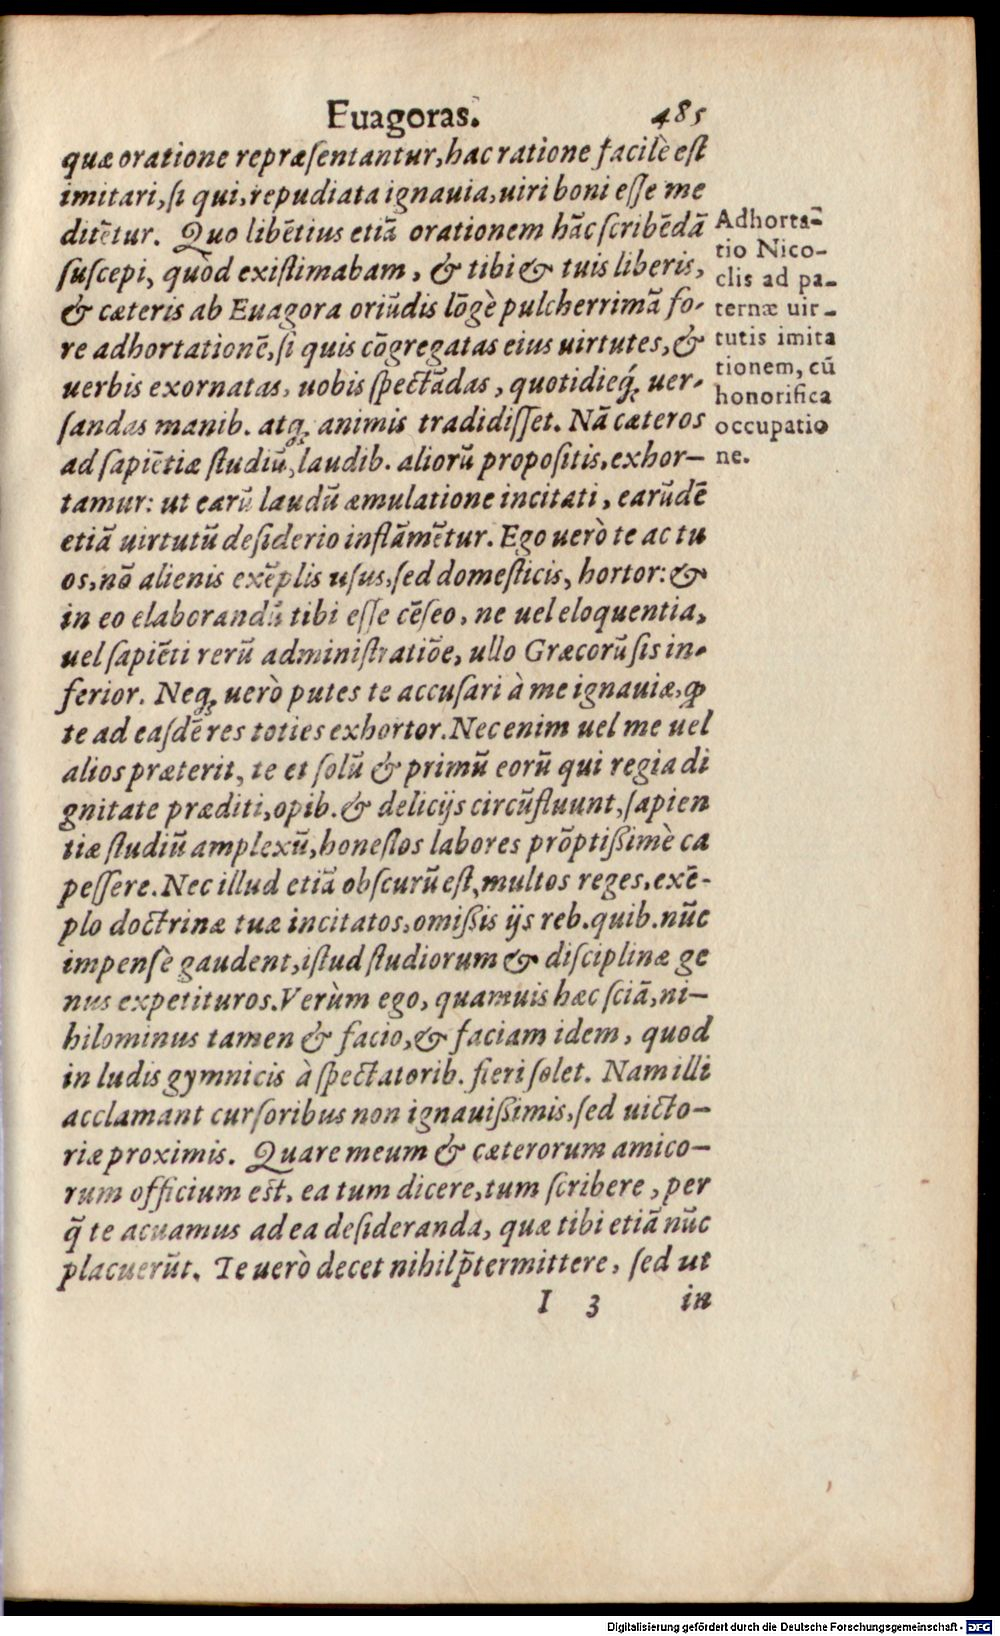 Euagoras. 485
quæ oratione repræſentantur, hac ratione facilè eſt
imitari, ſi qui, repudiata ignauia, uiri boni eſſe me
ditẽtur. Quo libẽtius etiã orationem hãc ſcribẽdã
ſuſcepi, quòd exiſtimabam, & tibi & tuis liberis,
& cæteris ab Euagora oriũdis lõgè pulcherrimã fo-
re adhortationẽ, ſi quis cõgregatas eius uirtutes, &
uerbis exornatas, uobis ſpectãdas, quotidieq́ꝫ uer-
ſandas manib. atqꝫ animis tradidiſſet. Nã cæteros
ad ſapiẽtiæ ſtudiũ, laudib. aliorũ propoſitis, exhor-
tamur: ut earũ laudũ æmulatione incitati, earũdẽ
etiã uirtutũ deſiderio inflãmẽtur. Ego uerò te ac tu
os, nõ alienis exẽplis uſus, ſed domeſticis, hortor: &
in eo elaborandũ tibi eſſe cẽſeo, ne uel eloquentia,
uel ſapiẽti rerũ adminiſtratiõe, ullo Græcorũ ſis in-
ferior. Neqꝫ uerò putes te accuſari à me ignauiæ, ꝙ
te ad eaſdẽ res toties exhortor. Nec enim uel me uel
alios præterit, te et ſolũ & primũ eorũ qui regia di
gnitate præditi, opib. & delicijs circũfluunt, ſapien
tiæ ſtudiũ amplexũ, honeſtos labores prõptißimè ca
peſſere. Nec illud etiã obſcurũ eſt, multos reges, exẽ-
plo doctrinæ tuæ incitatos, omißis ijs reb. quib. nũc
impenſè gaudent, iſtud ſtudiorum & diſciplinæ ge
nus expetituros. Verùm ego, quamuis hæc ſciã, ni-
hilominus tamen & facio, & faciam idem, quod
in ludis gymnicis à ſpectatorib. fieri ſolet. Nam illi
acclamant curſoribus non ignauißimis, ſed uicto-
riæ proximis. Quare meum & cæterorum amico-
rum officium eſt, ea tum dicere, tum ſcribere, per
q̃ te acuamus ad ea deſideranda, quæ tibi etiã nũc
placuerũt. Te uerò decet nihil p̃termittere, ſed ut
I 3 in
Adhorta-
tio Nico-
clis ad pa-
ternæ uir-
tutis imita
tionem, cũ
honorifica
occupatio
ne.
Digitalisierung gefördert durch die Deutsche Forschungsgemeinschaft - DFG